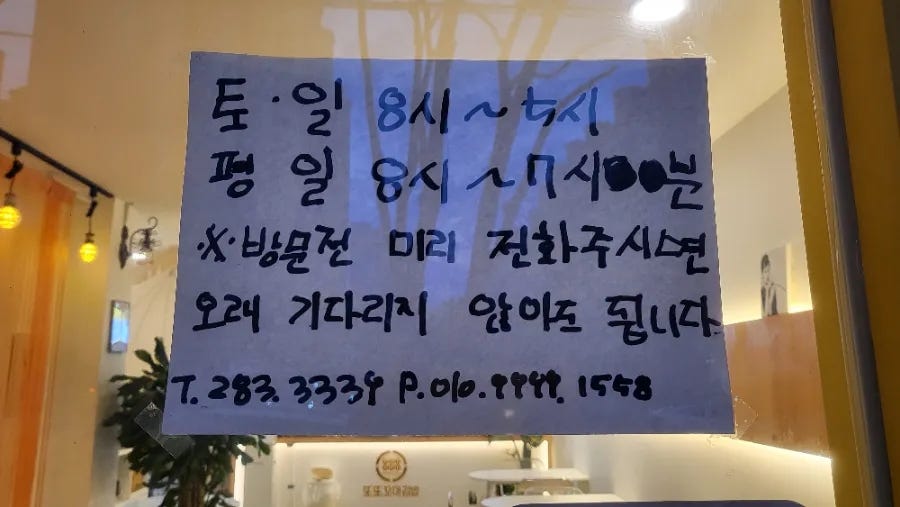 토·일 8시~5시
평일 8시~7시 분
※방문전 미리 전화주시면
오래 기다리지 않아도 됩니다.
T. 283. 3334 P. 010. 9999. 1558
또또꼬마김밥